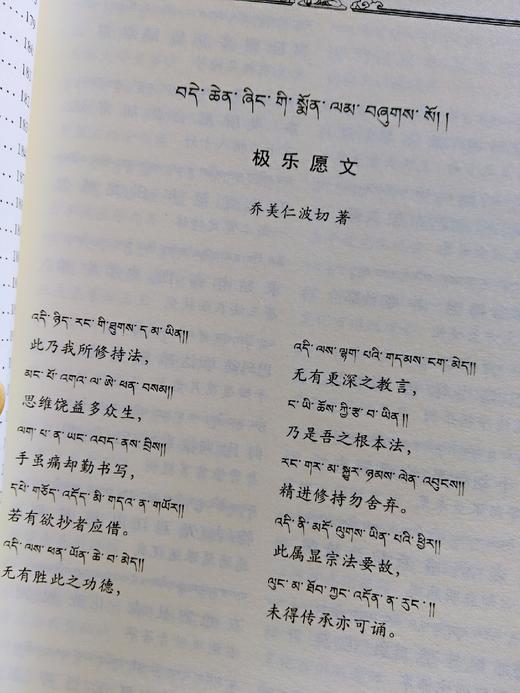 བདེ་ཆེན་ཞིང་གི་སྨོན་ལམ་བཞུགས་སོ།།
极乐愿文
乔美仁波切 著
འདི་ཉིད་རང་གི་ཐུགས་ད མ་ཡིན།།
此乃我所修持法，
མང་པོ་འགའ་ལ་ཨེ་ཕན་བསམ།།
思维饶益多众生，
ལག་པ་ན་ཡང་འབད་ནས་བྲིས།།
手虽痛却勤书写，
དཔེ་གཅོད་འདོད་མི་གདའ་ན་གཡོར།།
若有欲抄者应借。
འདི་ལས་ཕན་ཡོན་ཆེ་བ་མེད།།
无有胜此之功德，
འདི་ལས་ལྷག་པའི་གདམས་ངག་མེད།།
无有更深之教言，
ང་ཡི་ཆོས་ཀྱི་རྩ་བ་ཡིན།།
乃是吾之根本法，
རང་གར་མ་སྐྱུར་ཉམས་ལེན་འབུངས།།
精进修持勿舍弃。
འདི་ནི་མདོ་ལུགས་ཡིན་པའི་ཕྱིར།།
此属显宗法要故，
ལུང་མ་ཐོབ་ཀྱང་འདོན་ན་རུང་།།
未得传承亦可诵。